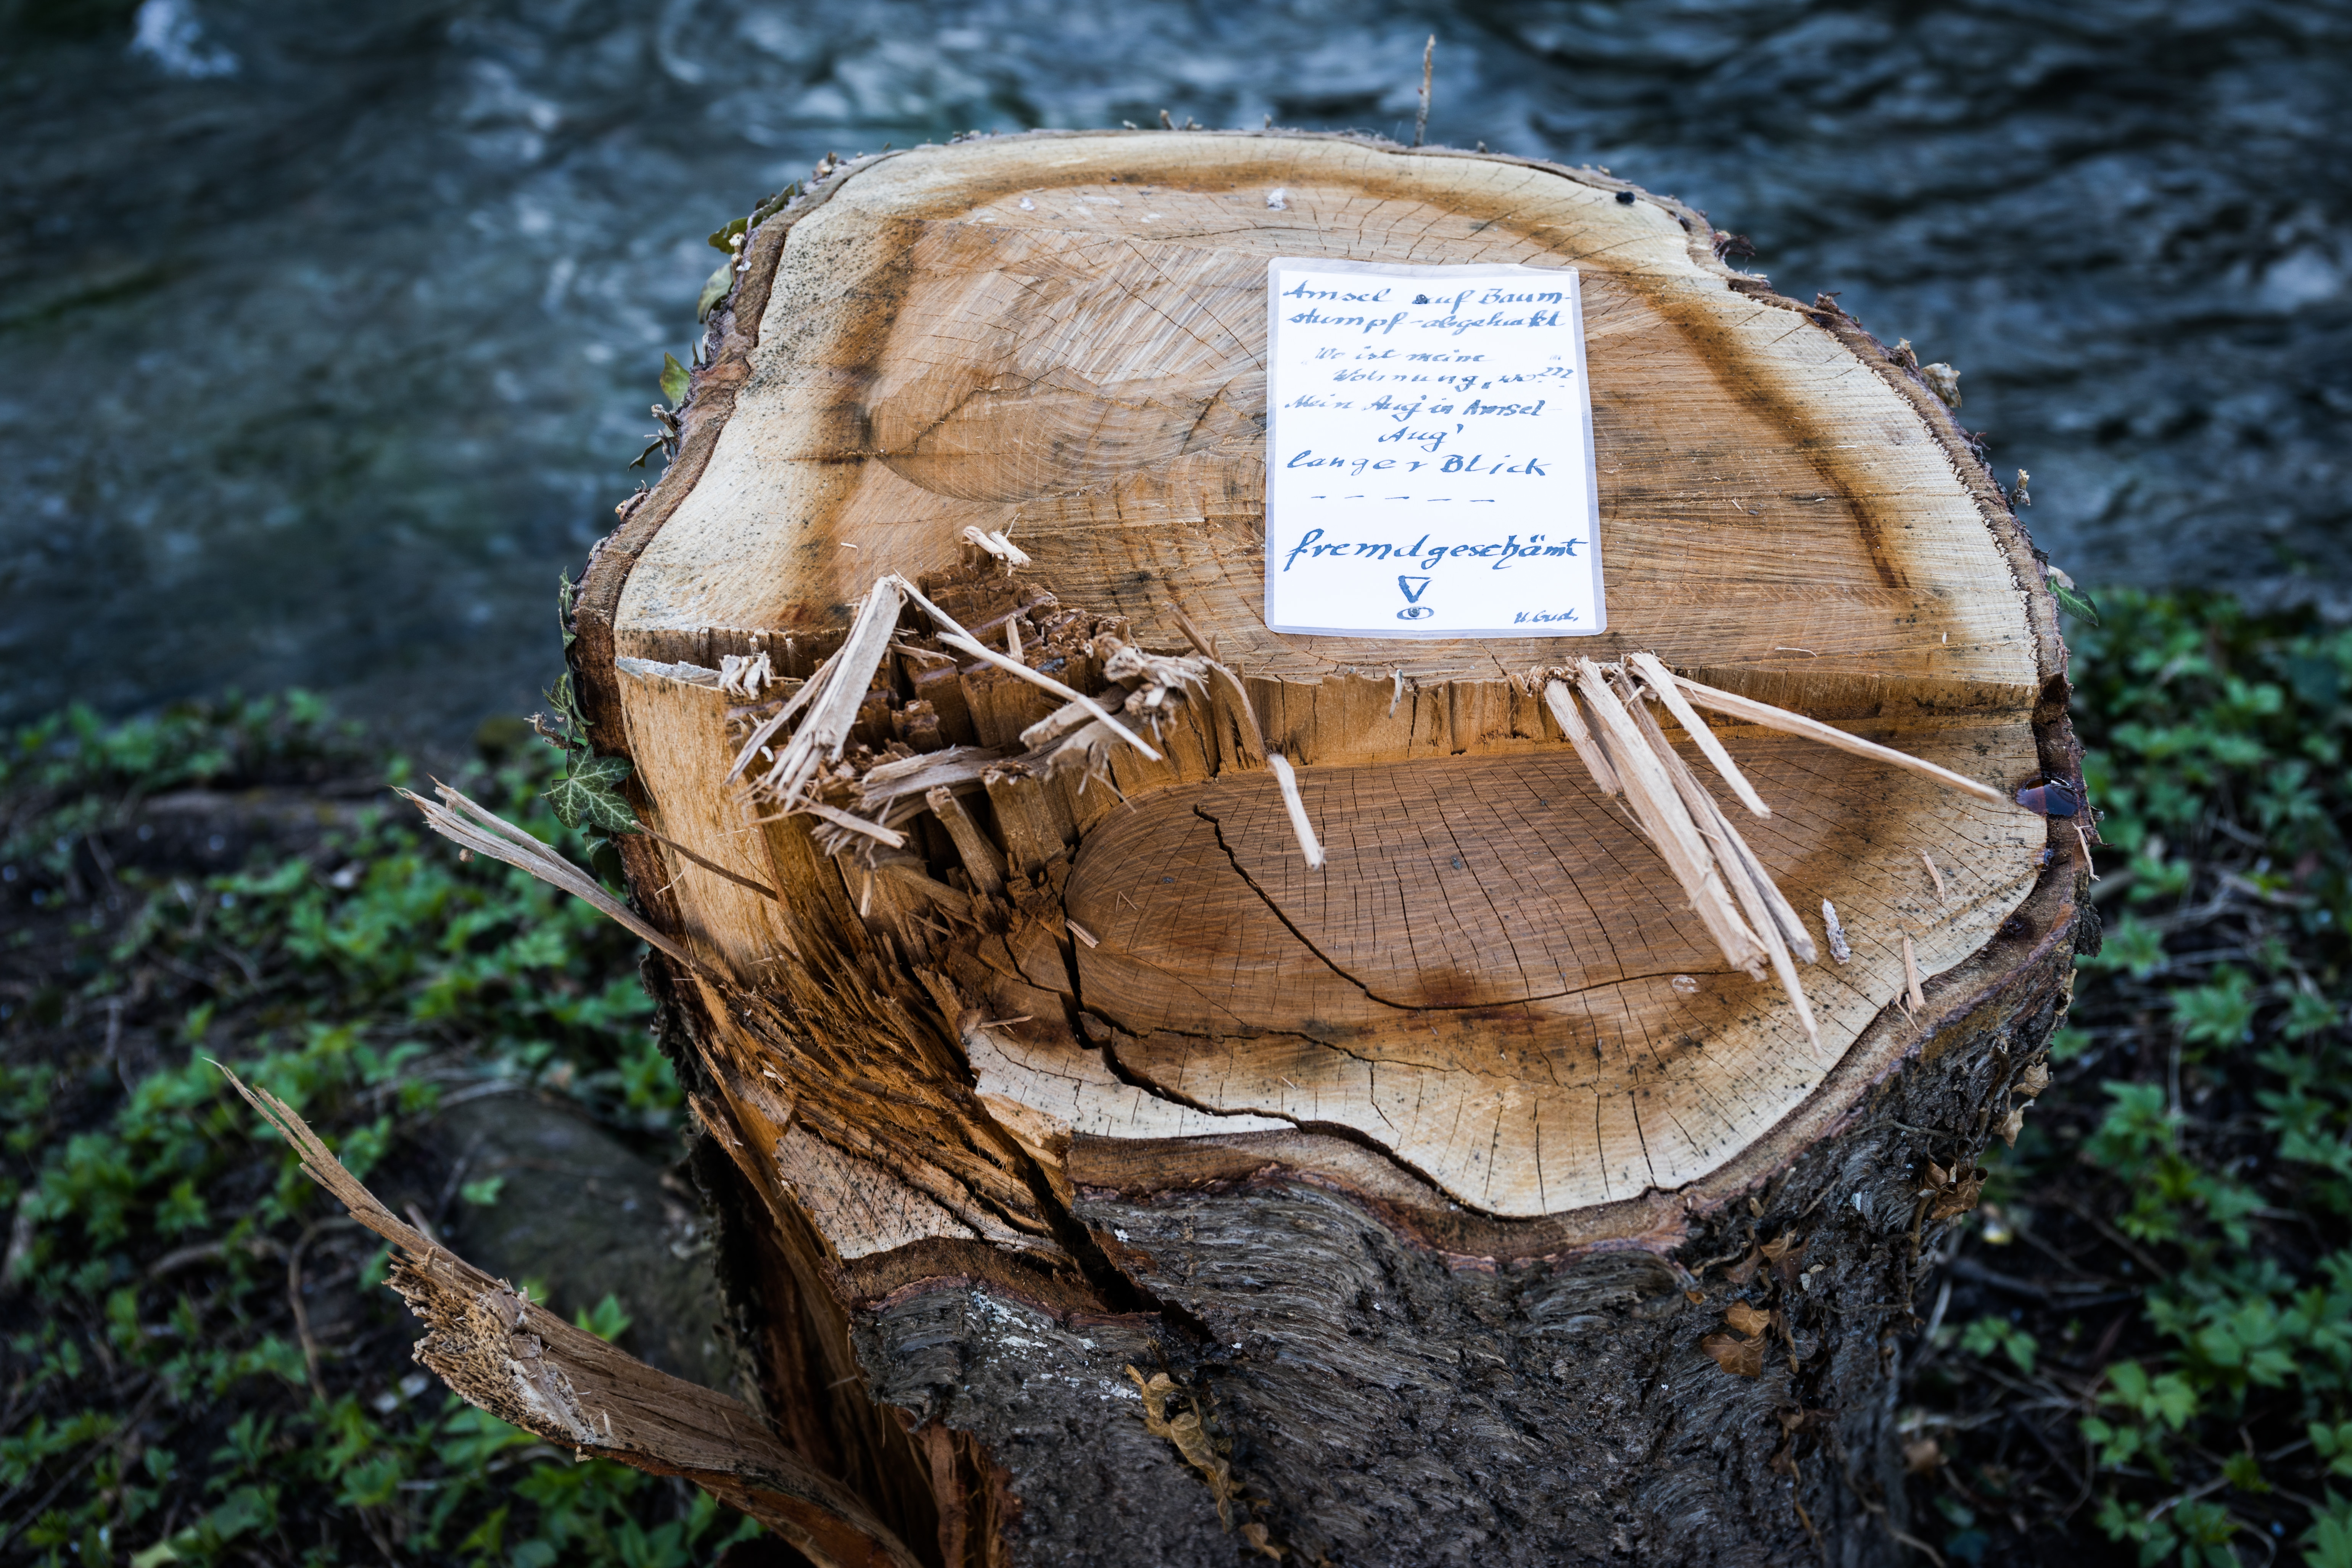 Amsel auf Baum-
stumpf-abgehakt
"Wo ist meine
Wohnung, wo???"
Mein Aug' in Amsel
Aug'
langer Blick
- - - - -
fremdgeschämt
!
U. Gud.